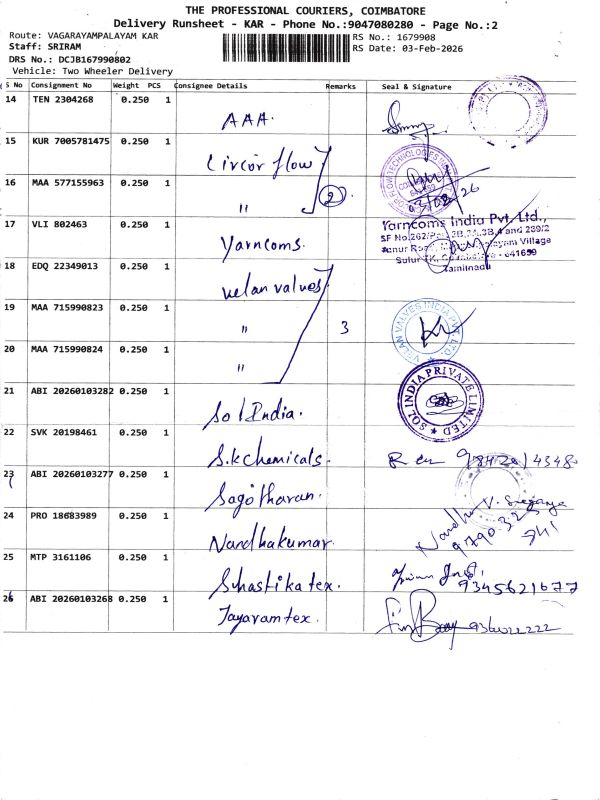 THE PROFESSIONAL COURIERS, COIMBATORE
Delivery Runsheet - KAR - Phone No.:9047080280 - Page No.:2
Route: VAGARAYAMPALAYAM KAR
RS No.: 1679908
Staff: SRIRAM
RS Date: 03-Feb-2026
DRS No.: DCJB167990802
Vehicle: Two Wheeler Delivery
S No Consignment No Weight PCS Consignee Details Remarks Seal & Signature
14 TEN 2304268 0.250 1 AAA.
15 KUR 7005781475 0.250 1 Circor flow
16 MAA 577155963 0.250 1 " 2
03/02/26
17 VLI 802463 0.250 1 Yarncoms.
Yarncoms India Pvt. Ltd.,
Sulur TK, Coimbatore - 641659
Tamilnadu
18 EDQ 22349013 0.250 1 velan valves
19 MAA 715990823 0.250 1 " 3
VELAN VALVES INDIA PVT. LTD.
20 MAA 715990824 0.250 1 "
21 ABI 20260103282 0.250 1 Sol India.
SOL INDIA PRIVATE LIMITED
22 SVK 20198461 0.250 1 S.k chemicals.
23 ABI 20260103277 0.250 1 Sagotharan.
24 PRO 18683989 0.250 1 Nandhakumar.
25 MTP 3161106 0.250 1 Suhastika tex.
9345621677
26 ABI 20260103268 0.250 1 Jayaramtex.